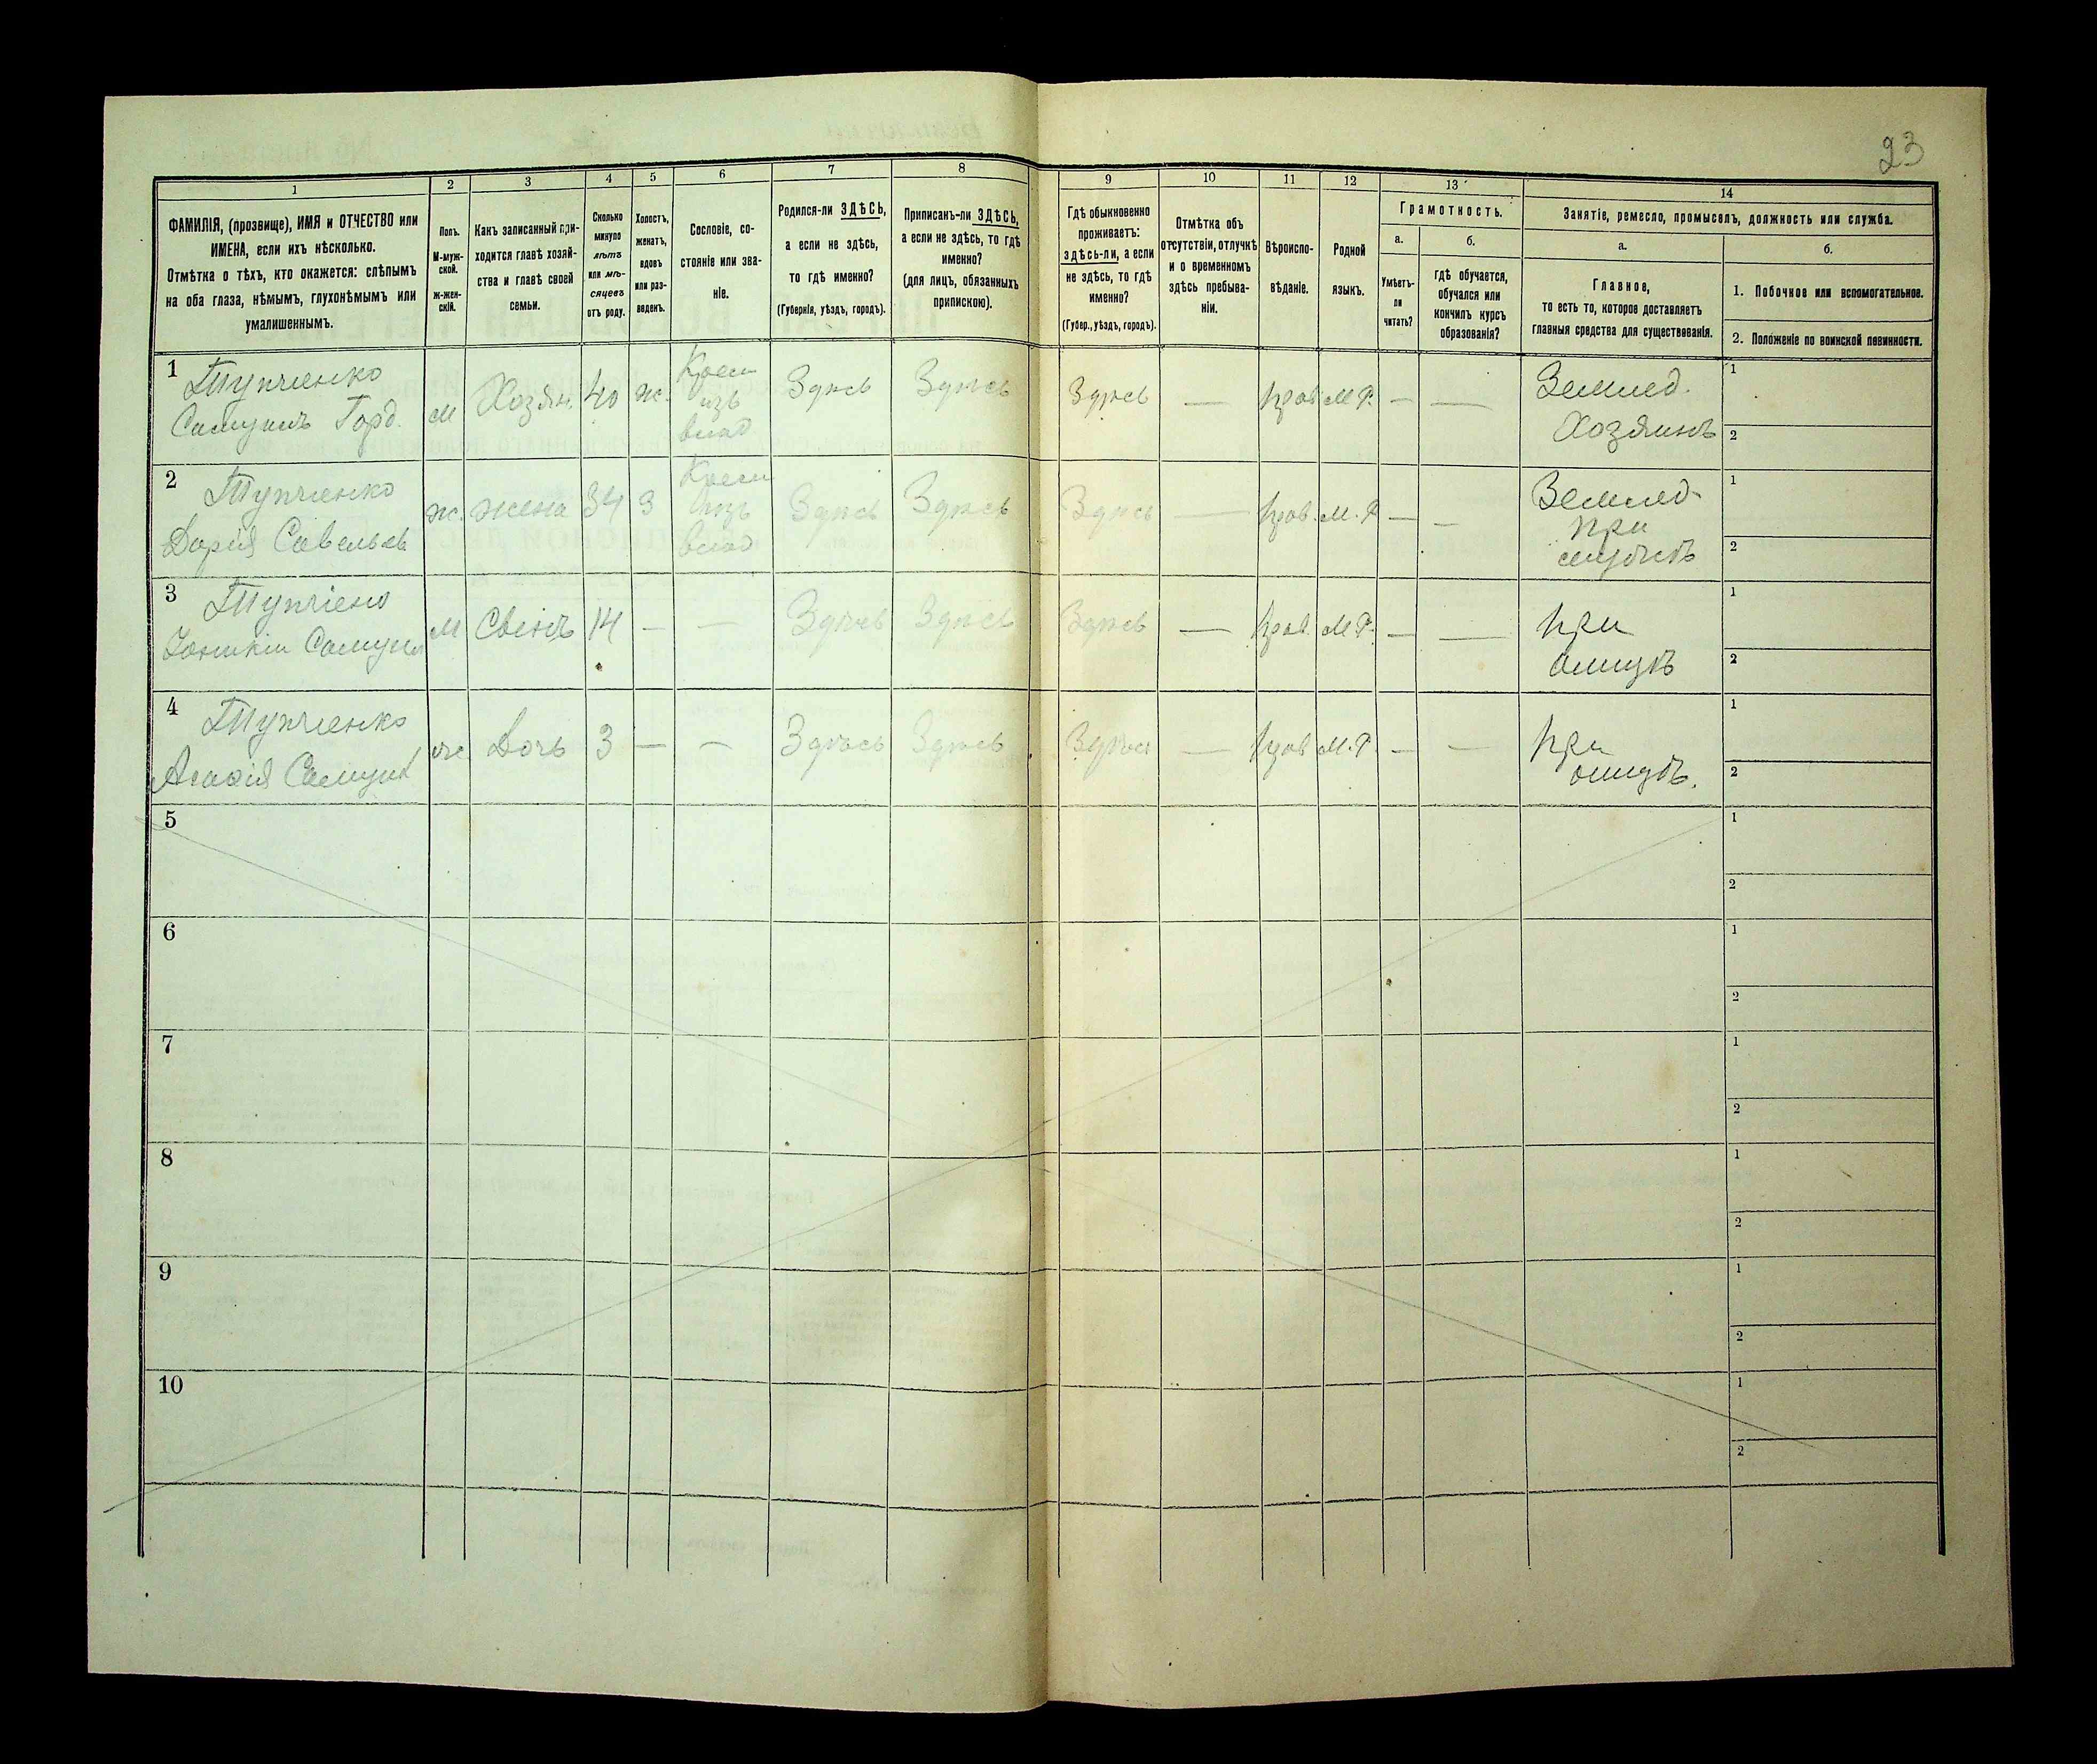 23
1 2 3 4 5 6 7 8 9 10 11 12 13 14
ФАМИЛІЯ, (прозвище), ИМЯ и ОТЧЕСТВО или
ИМЕНА, если ихъ нѣсколько.
Отмѣтка о тѣхъ, кто окажется: слѣпымъ
на оба глаза, нѣмымъ, глухонѣмымъ или
умалишеннымъ.
Полъ.
М-муж-
ской.
Ж-жен-
скій.
Какъ записанный при-
ходится главѣ хозяй-
ства и главѣ своей
семьи.
Сколько
минуло
лѣтъ
или мѣ-
сяцевъ
отъ роду.
Холостъ,
женатъ,
вдовъ
или раз-
веденъ.
Сословіе, со-
стояніе или зва-
ніе.
Родился-ли ЗДѢСЬ,
а если не здѣсь,
то гдѣ именно?
(Губернія, уѣздъ, городъ).
Приписанъ-ли ЗДѢСЬ,
а если не здѣсь, то гдѣ
именно?
(для лицъ, обязанныхъ
припискою).
Гдѣ обыкновенно
проживаетъ:
здѣсь-ли, а если
не здѣсь, то гдѣ
именно?
(Губер., уѣздъ, городъ).
Отмѣтка объ
отсутствіи, отлучкѣ
и о временномъ
здѣсь пребыва-
ніи.
Вѣроиспо-
вѣданіе.
Родной
языкъ.
Грамотность.
а.
Умѣетъ-
ли
читать?
б.
гдѣ обучается,
обучался или
кончилъ курсъ
образованія?
Занятіе, ремесло, промыселъ, должность или служба.
а.
Главное,
то есть то, которое доставляетъ
главныя средства для существованія.
б.
1. Побочное или вспомогательное.
2. Положеніе по воинской повинности.
1 Тупченко
Самуилъ Горд.
м Хозяин. 40 ж.
Крест
изъ
влад
Здѣсь Здѣсь Здѣсь — прав М.Р. — —
Землед.
Хозяинъ
1
2
2 Тупченко
Дарія Савельев
ж. жена 34 З
Крест
изъ
влад
Здѣсь Здѣсь Здѣсь — прав. М.Р — —
Землед.
при
1
2
3
м 14 — — Здѣсь Здѣсь Здѣсь — прав. М.Р. — —
при
1
2
4 Тупченко
ж. Дочь 3 — — Здѣсь Здѣсь Здѣсь — прав М.Р. — —
при
1
2
5
1
2
6
1
2
7
1
2
8
1
2
9
1
2
10
1
2